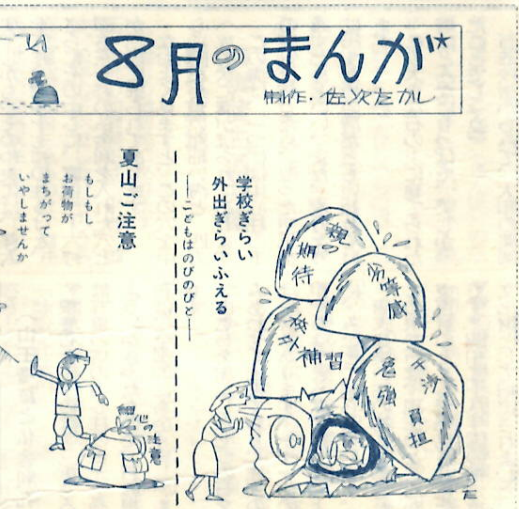 8月のまんが
制作・佐次たかし
学校ぎらい
外出ぎらいふえる
――こどもはのびのびと――
親の
期待
劣等感
補習
勉強
負担
夏山ご注意
もしもし
お荷物が
まちがって
いやしませんか
細心の注意